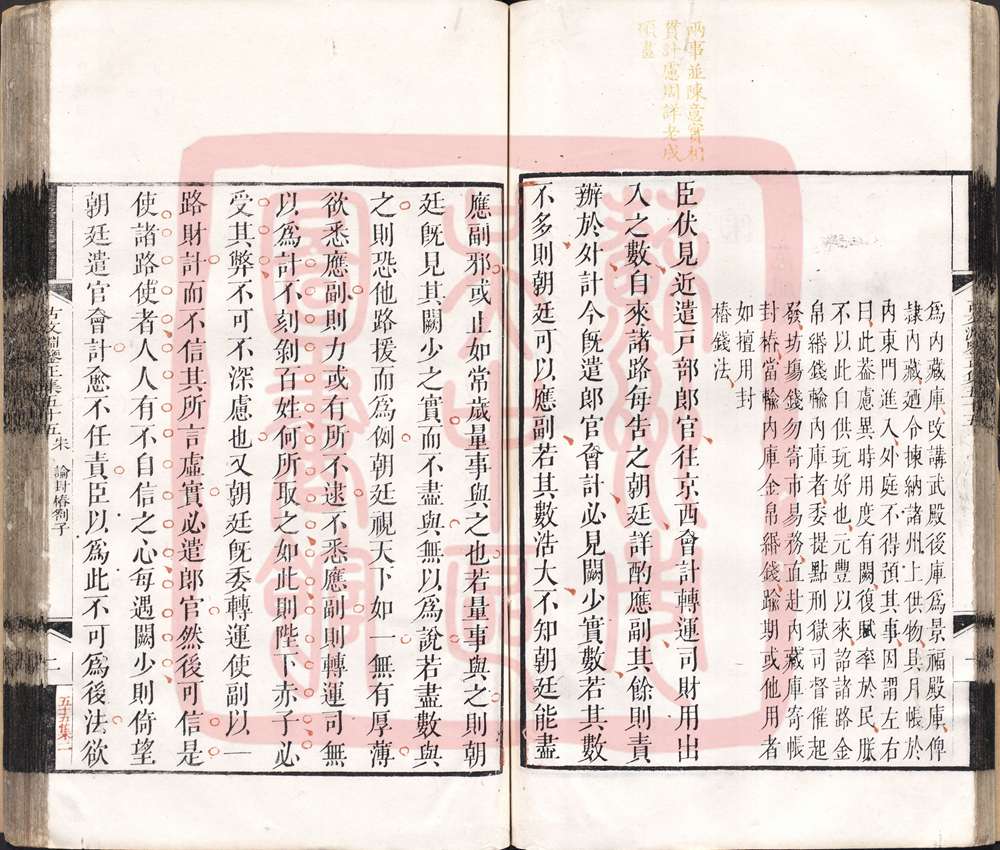 兩事並陳意實相
貫計慮周詳老成
碩畫
為內藏庫改講武殿後庫為景福殿庫俾
隸內藏廼令揀納諸州上供物具月帳於
內東門進入外庭不得預其事因謂左右
曰此葢慮異時用度有闕復賦率於民朕
不以此自供玩好也元豐以來詔諸路金
帛緡錢輸內庫者委提點刑獄司督催起
發坊場錢勿寄市易務直赴內藏庫寄帳
封樁當輸內庫金帛緡錢踰期或他用者
如擅用封
樁錢法
臣伏見近遣戸部郎官往京西會計轉運司財用出
入之數自來諸路每告乏朝廷詳酌應副其餘則責
辦於外計今旣遣郎官會計必見闕少實數若其數
不多則朝廷可以應副若其數浩大不知朝廷能盡
應副邪或止如常歲量事與之也若量事與之則朝
廷旣見其闕少之實而不盡與無以為說若盡數與
之則恐他路援而為例朝廷視天下如一無有厚薄
欲悉應副則力或有所不逮不悉應副則轉運司無
以為計不刻剝百姓何所取之如此則陛下赤子必
受其弊不可不深慮也又朝廷旣委轉運使副以一
路財計而不信其所言虛實必遣郎官然後可信是
使諸路使者人人有不自信之心每遇闕少則倚望
朝廷遣官會計愈不任責臣以為此不可為後法欲
古文淵鑒正集五十五 宋 論封樁劄子
二
五十五集二